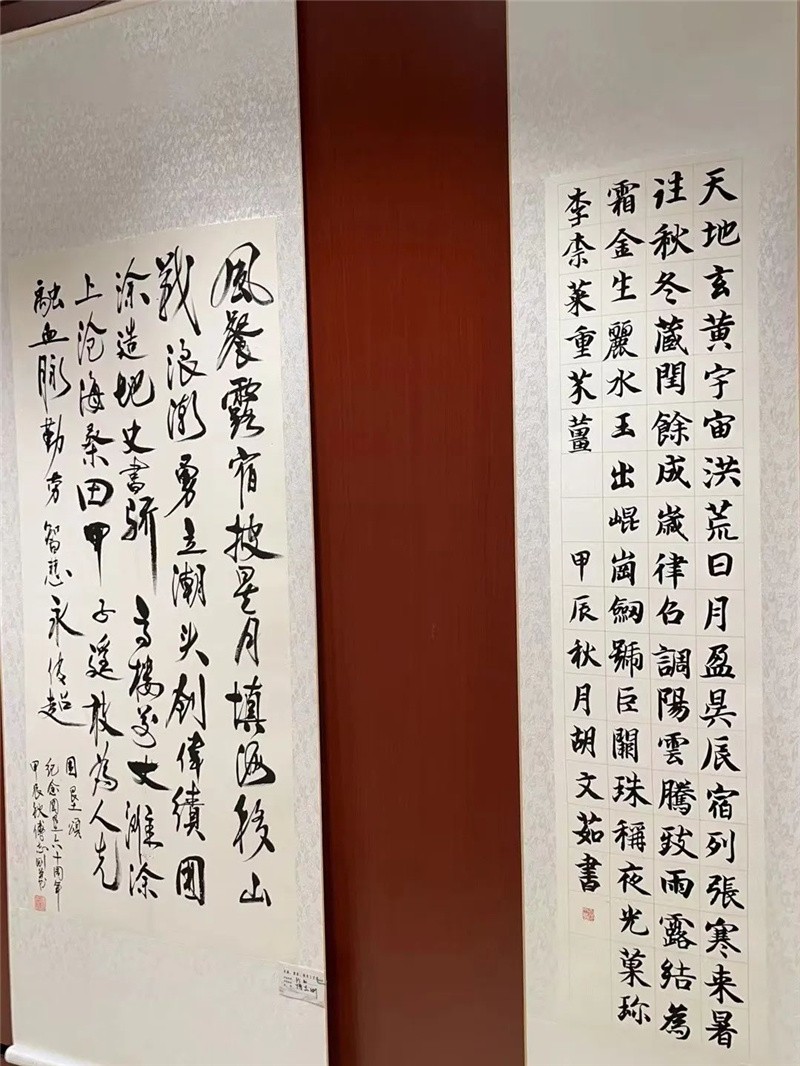 天地玄黄宇宙洪荒日月盈昃辰宿列張寒来暑
往秋冬蔵閏餘成歲律召調陽雲騰致雨露結為
霜金生麗水玉出崐崗劔號巨闕珠稱夜光菓珎
李柰菜重芥薑 甲辰秋月胡文茹書
風餐露宿披星月填海移山
戰浪潮勇立潮头創偉績圍
涂造地史書驕高樓万丈灘涂
上滄海桑田甲子敢為人先
融血脉勤劳智慧永傳
圍垦頌
纪念围垦六十周年
甲辰秋傅志刚书